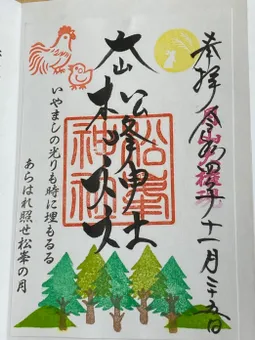 奉拝 令和四年十一月二十五日
松峰神社
松峯神社
いやましの光りも時に埋もるる
あらはれ照せ松峯の月